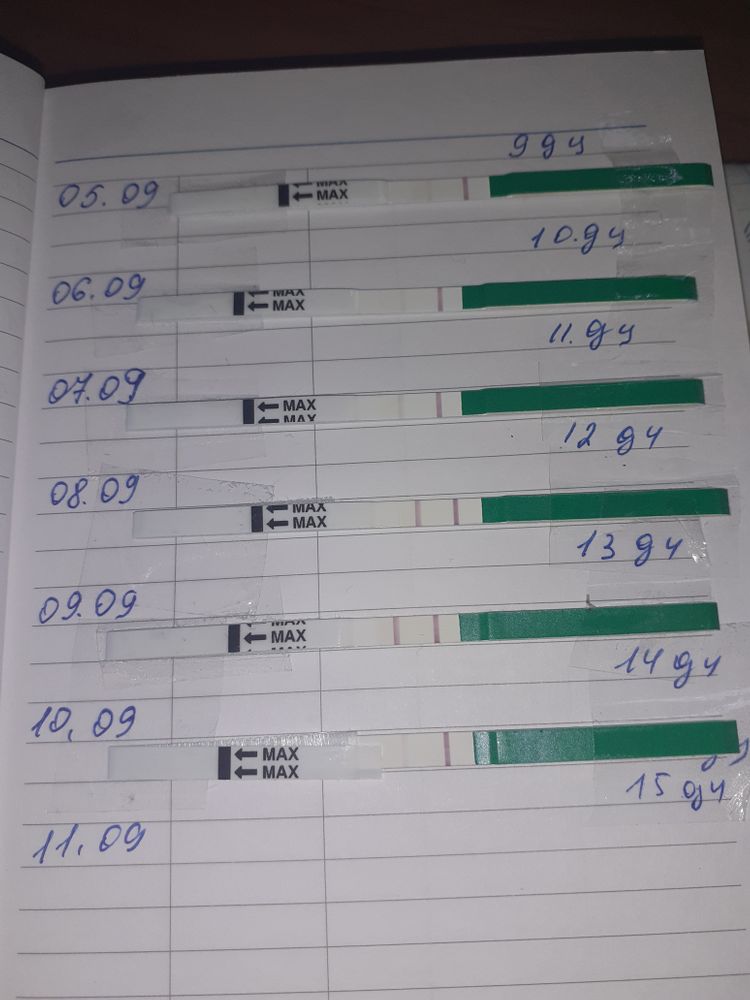 9 дц
05.09
MAX
MAX
10.дц
06.09
MAX
MAX
11.дц
07.09
MAX
MAX
12 дц
08.09
MAX
MAX
13 дц
09.09
MAX
MAX
MAX
14 дц
10.09
MAX
MAX
15 дц
11.09